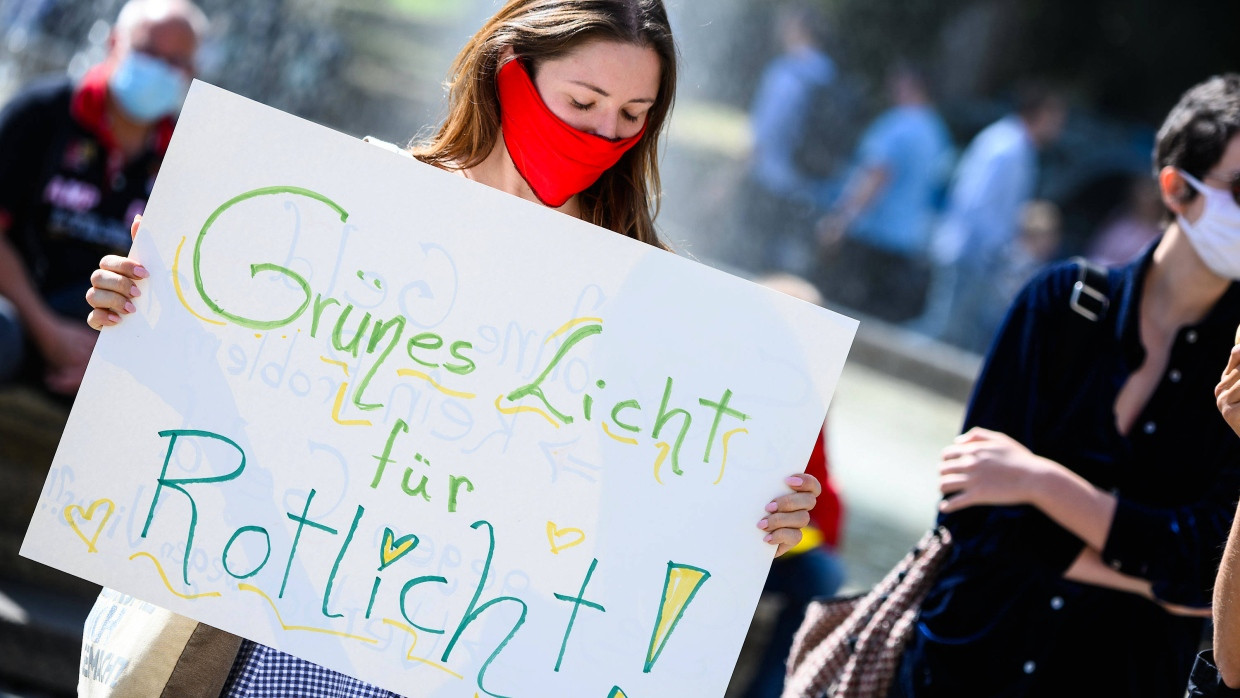 Grünes Licht
für
Rotlicht!